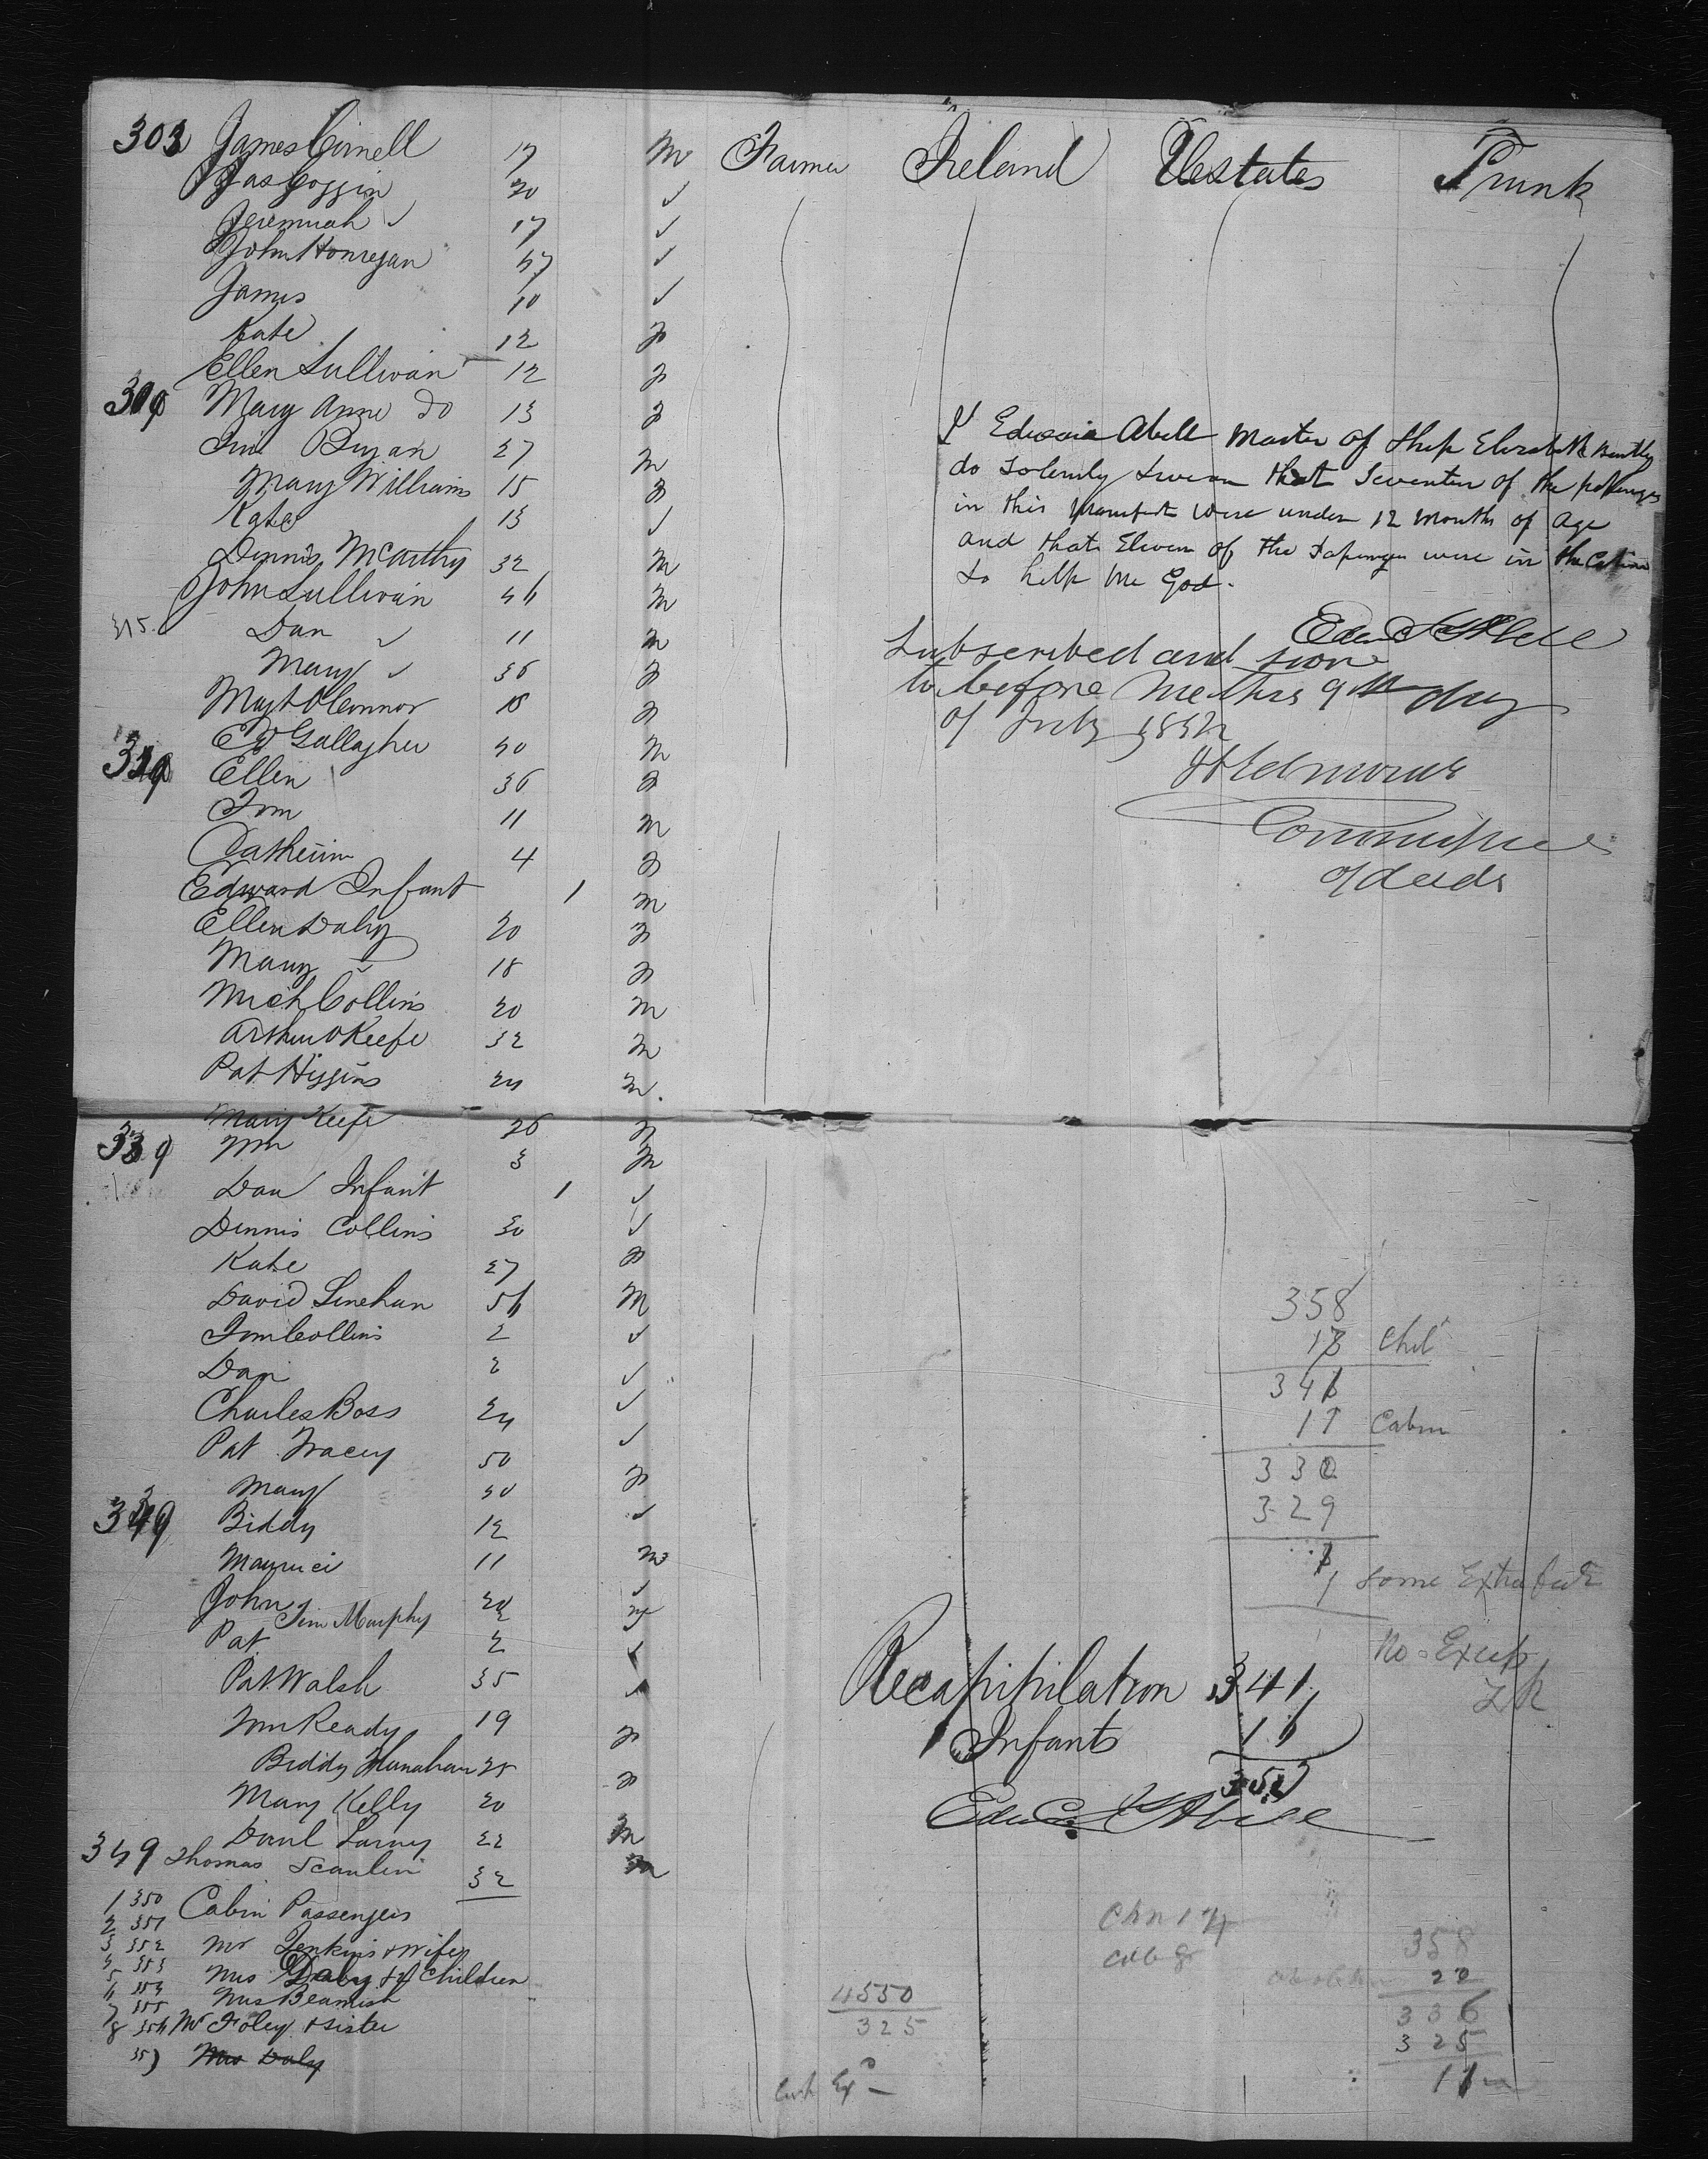 303 James Cornell 17 m Farmer Ireland UStates Trunk
Jas Goggin 20 ✓
Jeremiah ✓ 17 ✓
John Honregan 47 ✓
James 10 ✓
Kate 12 F
Ellen Sullivan 12 F
Mary Anne do 13 F
Jim Bryan 27 m
Mary Williams 15 F
Kate 13 ✓
Dennis McCarthy 32 m
John Sullivan 46 m
315. Dan ✓ 11 m
Mary ✓ 36 F
Magt OConnor 18 F
Ed Gallagher 40 m
Ellen 36 F
Tom 11 m
Catherine 4 F
Edward Infant 1 m
Ellen Daly 20 F
Mary ✓ 18 F
Mich Collins 20 m
Arthur OKeefe 32 m
Pat Higgins 24 m.
Mary Keefe 26 F
Wm 3 m
Dan Infant 1 ✓
Dennis Collins 30 ✓
Kate 27 F
David Linehan 56 M
Tom Collins 2 ✓
Dan 2 ✓
Charles Boss 24 ✓
Pat Tracey 50 ✓
Mary 40 F
Biddy 12 ✓
Maurice 11 m
John 20 ✓
Jim Murphy 2
Pat 2
Pat Walsh 35 ✓
Wm Ready 19
Biddy Hanahan 25 F
Mary Kelly 20
Danl Larny 22 m
349 Thomas Scanlin 32 m
1 350 Cabin Passengers
2 351
3 352 Mr Jenkins & Wife
4 353 Mrs Daly & Children
5 354 Mrs Beamish
7 355
8 356 Mr Foley & sister
357 Mrs Daly
I Edward Abell Master of Ship Elizabeth Bentley
do solemnly swear that seventeen of the passengers
in this manifest were under 12 months of age
and that Eleven of the passengers were in the Cabin
so help me God.
Edwd Abell
Subscribed and sworn
to before me this 9th day
of July 1852
Commissioner
of deeds
358
18 Chil
341
11 Cabin
330
329
1
1 some Extra
No Excess
Recapitulation 341
Infants 16
357
Edwd Abell
4550
325
358
22
336
325
11